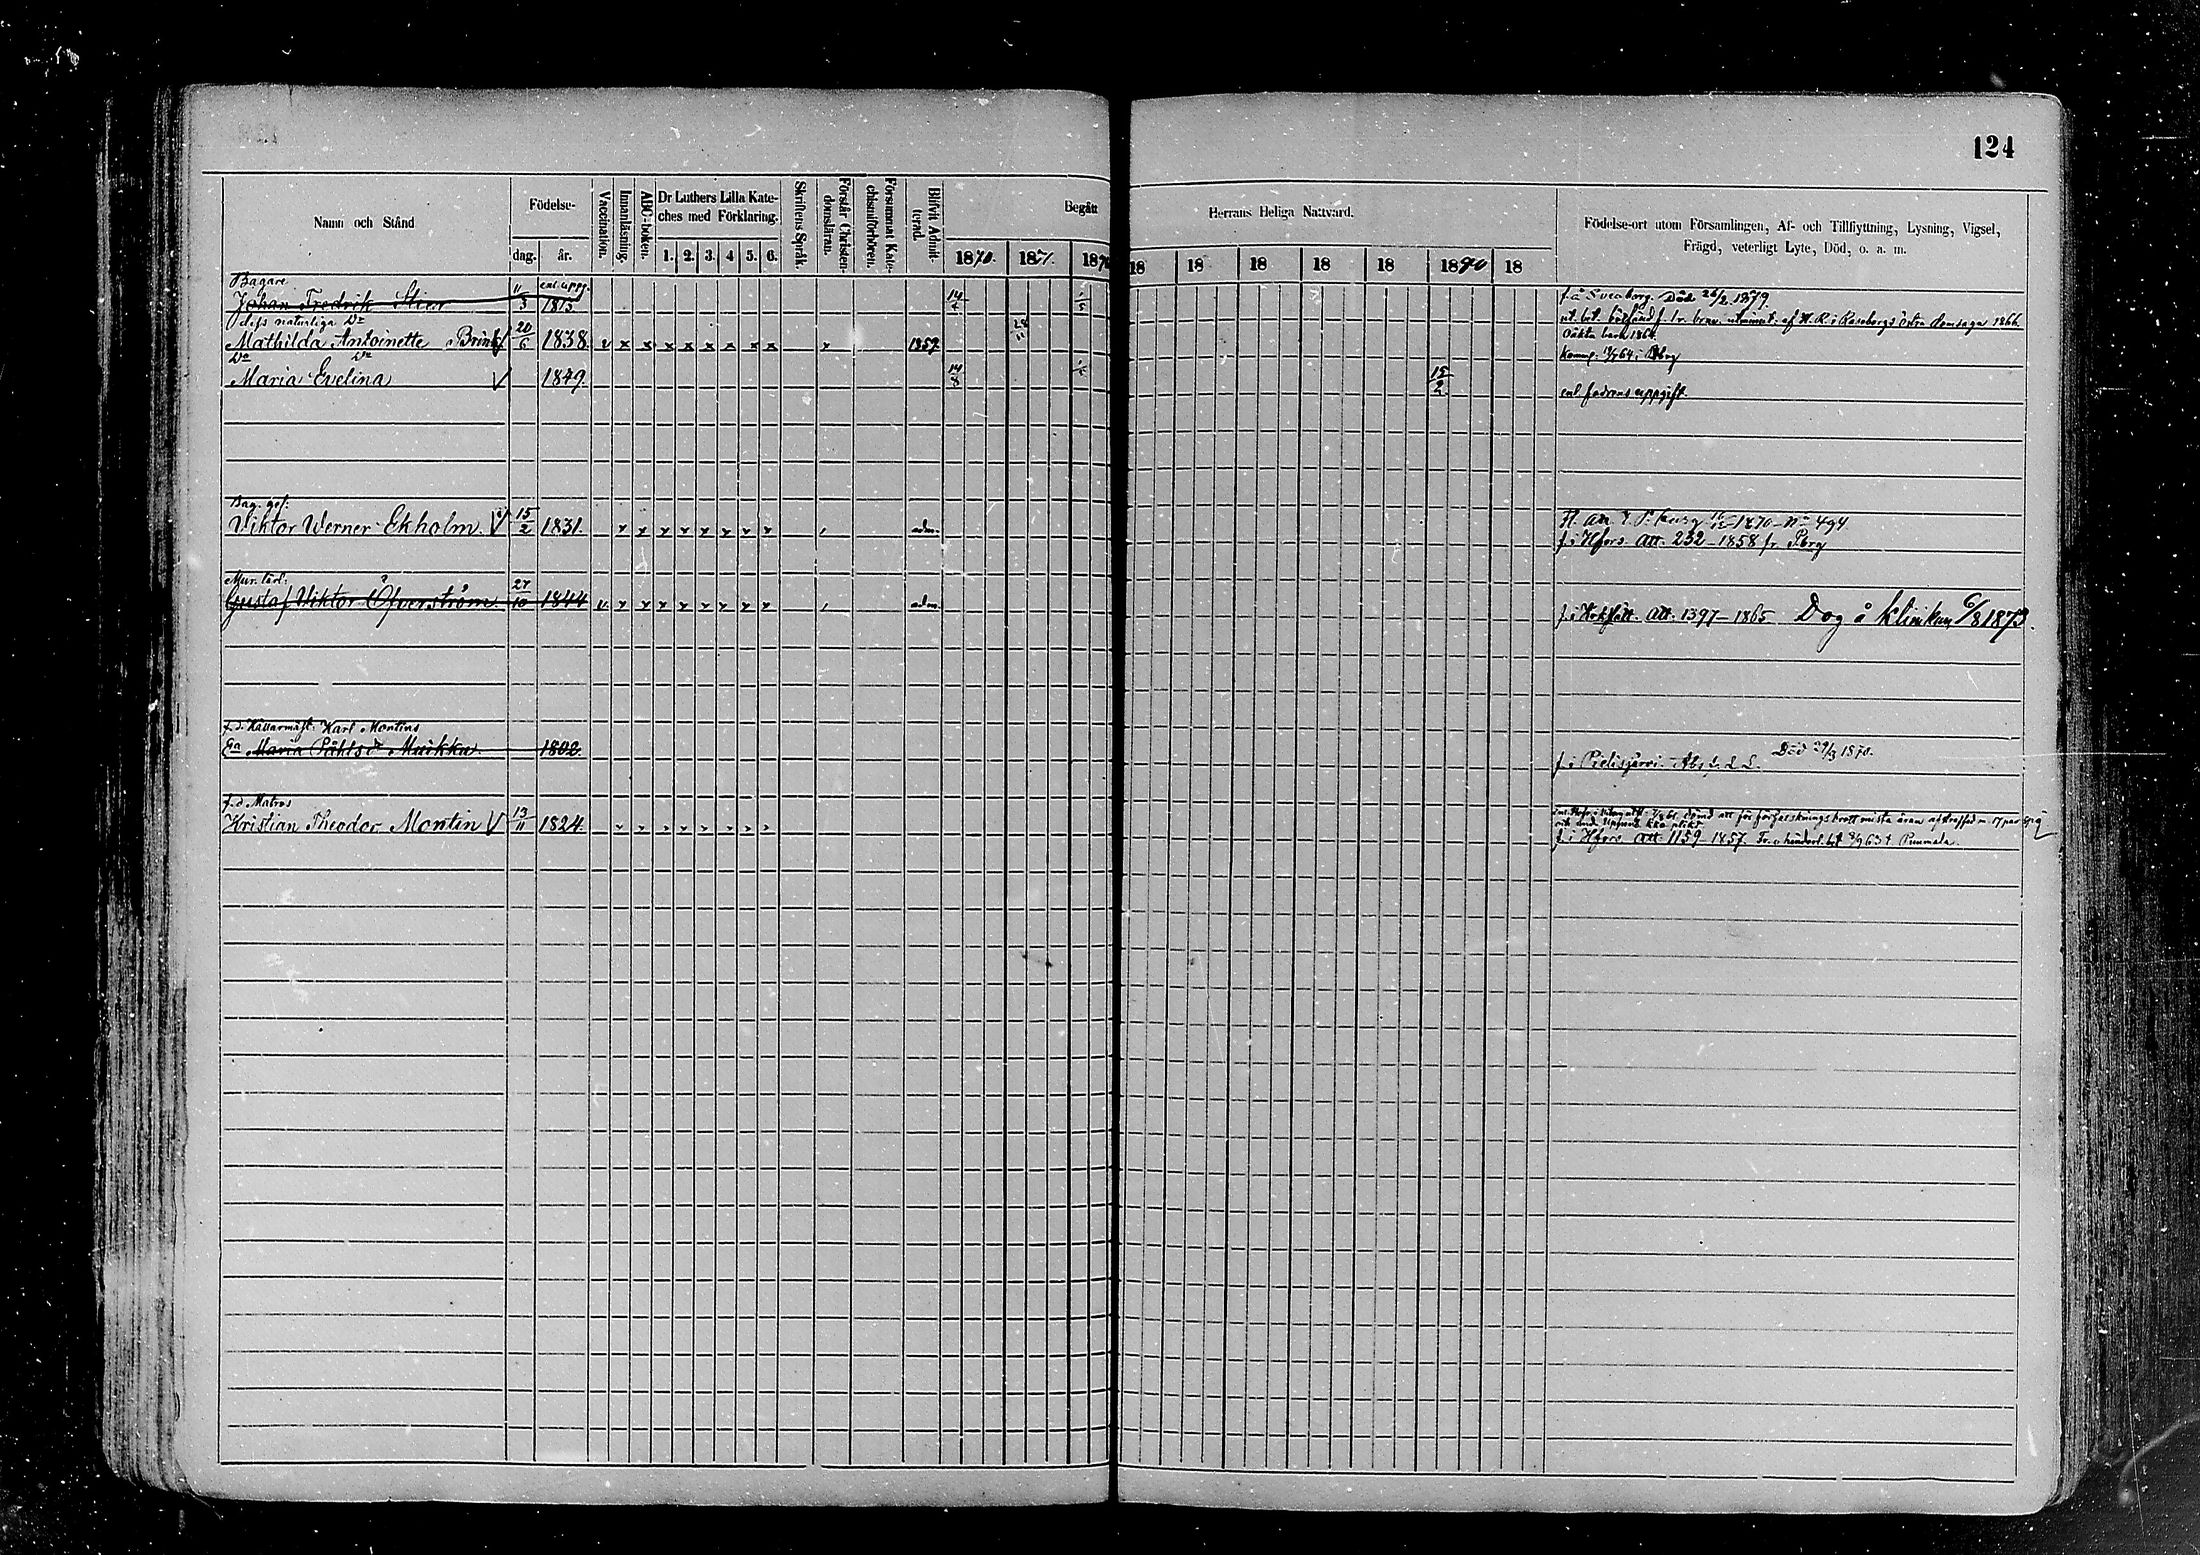 124
Namn och Stånd
Födelse-
dag.
år.
Vaccination.
Innanläsning.
ABC-boken.
Dr Luthers Lilla Kate-
ches med Förklaring.
1. 2. 3. 4 5. 6.
Skriftens Språk.
Förstår Christen-
domsläran.
Försummat Kate-
chismiförhören.
Blifvit Admit-
terad.
Begått
Herrans Heliga Nattvard.
1870. 1871. 187
18 18 18 18 18 1890 18
Födelse-ort utom Församlingen, Af- och Tillflyttning, Lysning, Vigsel,
Frägd, veterligt Lyte, Död, o. a. m.
Bagare
Johan Fredrik Stier 11/3 enl. uppg. 1813 14/4
f. å Sveaborg. Död 26/2 1879
dess naturliga Dr
Mathilda Antoinette Brink 20/6 1838 v x x x x x x x x 1859
af H. R. i Raseborgs östra domsaga 1866
Oäkta barn 1864.
Da Dr
Maria Evelina 1849 14/8 15/2
enl. fadrens uppgift
Bag. ges:
Viktor Werner Ekholm. 15/2 1831. adm.
1870 No 494
f. i Hfors. Att. 232 - 1858 fr. Pbrg
Mur. lärl:
Gustaf Viktor Öfverström 27/10 1844 v. adm.
Att. 1397 - 1865 Dog å kliniken 6/8 1873.
f. d. Källarmäst. Karl Montins
Ea Maria Påhlsdr Muikku 1802
f. i Pielisjärvi. Död 29/3 1870.
f. d. Matros
Kristian Theodor Montin 13/11 1824.
f. i Hfors Att. 1159 - 1857.